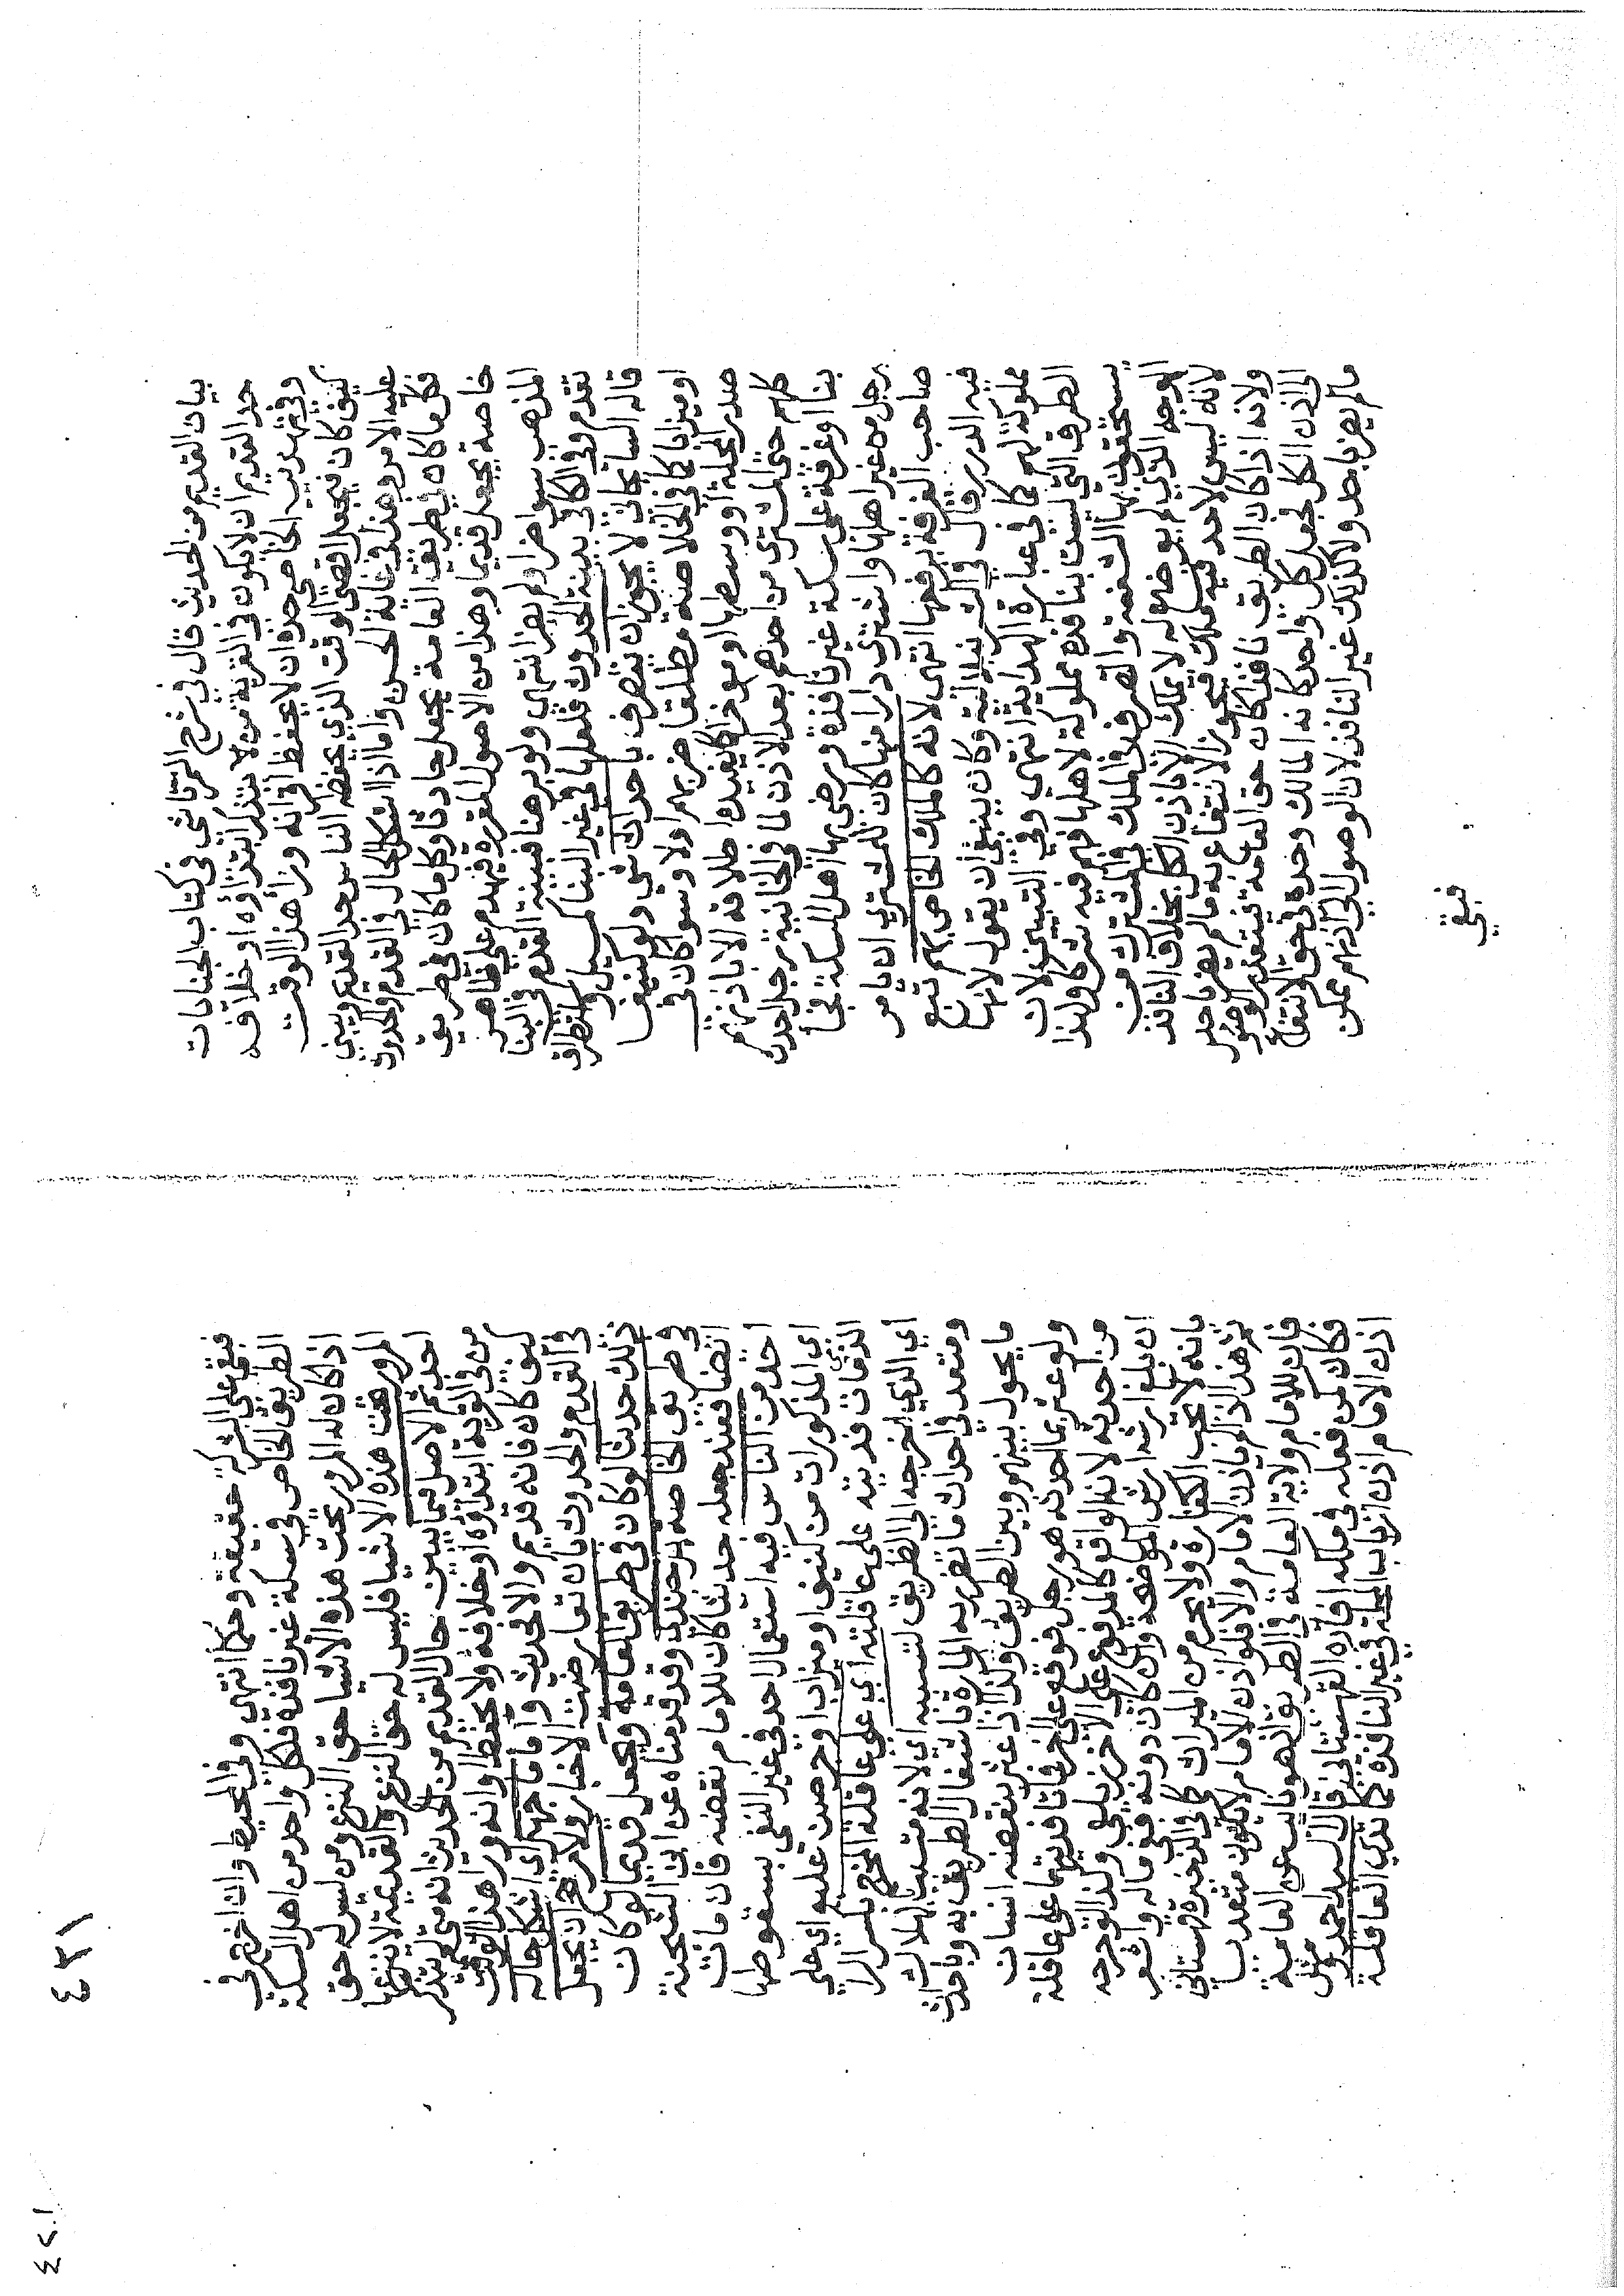 بيان القديم من الحديث قال في شرح التمرتاشي في كتاب الجنايات
حد القديم ان لا يكون في القرية من لا يتذكر ابتداؤه او خلافه
وفي تهذيب الخاصي حده ان لا يحفظ اقرانه وراء هذا الوقت
كيف كان فيجعل اقصى الوقت الذي يحفظه الناس حد القديم ويبنى
عليه الامر وهذا في غاية الحسن واما اذا اشكل الحال في القدم والحدوث
فكل ما كان في طريق العامة يجعل حادثا وكل ما كان في طريق
خاصة يجعل قديما وهذا من الاصول المقررة فيهدم على ظاهر
المذهب سواء ضر او لم يضر انتهى ولو برهنا فبينة القدم في البنا
تقدم وفي الكافي بينة الحدوث فلعلها في غير البناء كمسيل واستطراق
قاله السايحاني لا يجوز ان يتصرف باحداث شي ولو كنيفا
او ميزابا كما في الخلاصة مطلقا ضر بهم او لا وسوا كان في
صدر المحلة او وسطها او موخرا كما يفيده اطلاقه الا باذنهم
كلهم حتى المشتري من احدهم بعد الاذن لما في الخانية رجل احدث
بنا او غرفة على سكة غير نافذة ورضي بها اهل السكة فجا
رجل من غير اهلها واشترى دارا منها كان للمشتري ان يامر
صاحب الغرفة برفعها انتهى لانه كالملك الخاص بهم تبع
فيه الدرر قال في الشرنبلالية وكان ينبغي ان يقول لانها
مملوكة لهم كما في عبارة الهداية انتهى وفي التبيين لان
الطرق التي ليست بنافذة مملوكة لاهلها فهم فيه شركا ولهذا
يستحقون بها الشفعة والتصرف في الملك المشترك من
الوجه الذي لم يوضع له لا يملك الا باذن الكل بخلاف النافذ
لانه ليس لاحد فيه ملك فيجوز الانتفاع به ما لم يضر باحد
ولانه اذا كان الطريق نافذا كان حق العامة فيتعذر الوصول
الى اذن الكل فجعل كل واحد كانه المالك وحده في حق الانتفاع
ما لم يضر باحد ولا كذلك غير النافذ لان الوصول الى اذنهم ممكن
فبقى
٤٢١
٤٢٠١
فبقي على الشركة حقيقة وحكما انتهى وفي المحيط وان اخرج في
الطريق الخاص في سكة غير نافذة فلكل واحد من اهل السكة
اذا كان له المرور تحت هذه الاشيا حق النزع ومن ليس له حق
المرور تحت هذه الاشيا فليس له حق النزع والقديمة لا ينزعها
احد ثم الاصل فيما يبين حال القديم من الحديث انه متى لم يتذكر
من في القرية ابتداؤه او خلافه ولا يحفظ اقرانه ورا هذا الوقت
كيف كان فانه قديم والا فحديث واما ما جهل اي اشكل حاله
في القدم والحدوث بان تعارضت الاخبار ولا مرجح ان يجعل
ذلك حديثا لو كان في طريق العامة ويجعل قديما لو كان
في طريق الخاصة برجندي وقد قدمناه عن ابن الشحنة
ايضا فعند جعله حديثا كان للامام نقضه فان مات
احد من الناس فيه استعمال احد في غير النفي بسقوطها
اي المذكورات من كنيف او ميزاب او جرصن عليه اي على
الذي مات فديته على عاقلته اي على عاقلة المخرج بكسر الرا
اي الذي اخرجه الى الطريق لتسببه اي لانه متسبب لهلاكه
ومتعد في احداث ما تضرر به المارة باشغال الطريق به وباحداث
ما يحول بينهم وبين الطريق وكذا اذا عثر بنقضه انسان
ولو عثر بما احدثه هو رجل فوقع على اخر فماتا فديتهما على عاقلة
من احدثه لانه الواقع كالمدفوع على الاخر زيلعي ولذا لو جرحه
ان بلغ ارشه ارش الموضحة وان كان دونه ففي ماله واشار
بانه لا تجب الكفارة ولا يحرم من الميراث كما في الذخيرة قهستاني
ثم هذا اذا لم ياذن الامام والا فلو اذن الامام لا يكون متعديا
فان للامام ولاية العامة في الطريق اذ هو نايب عن العامة
فكان كمن فعله في ملكه افاده القهستاني قال السيد الحموي مثل
اذن الامام اذن ارباب المحلة في غير النافذة كما تدي العاقلة